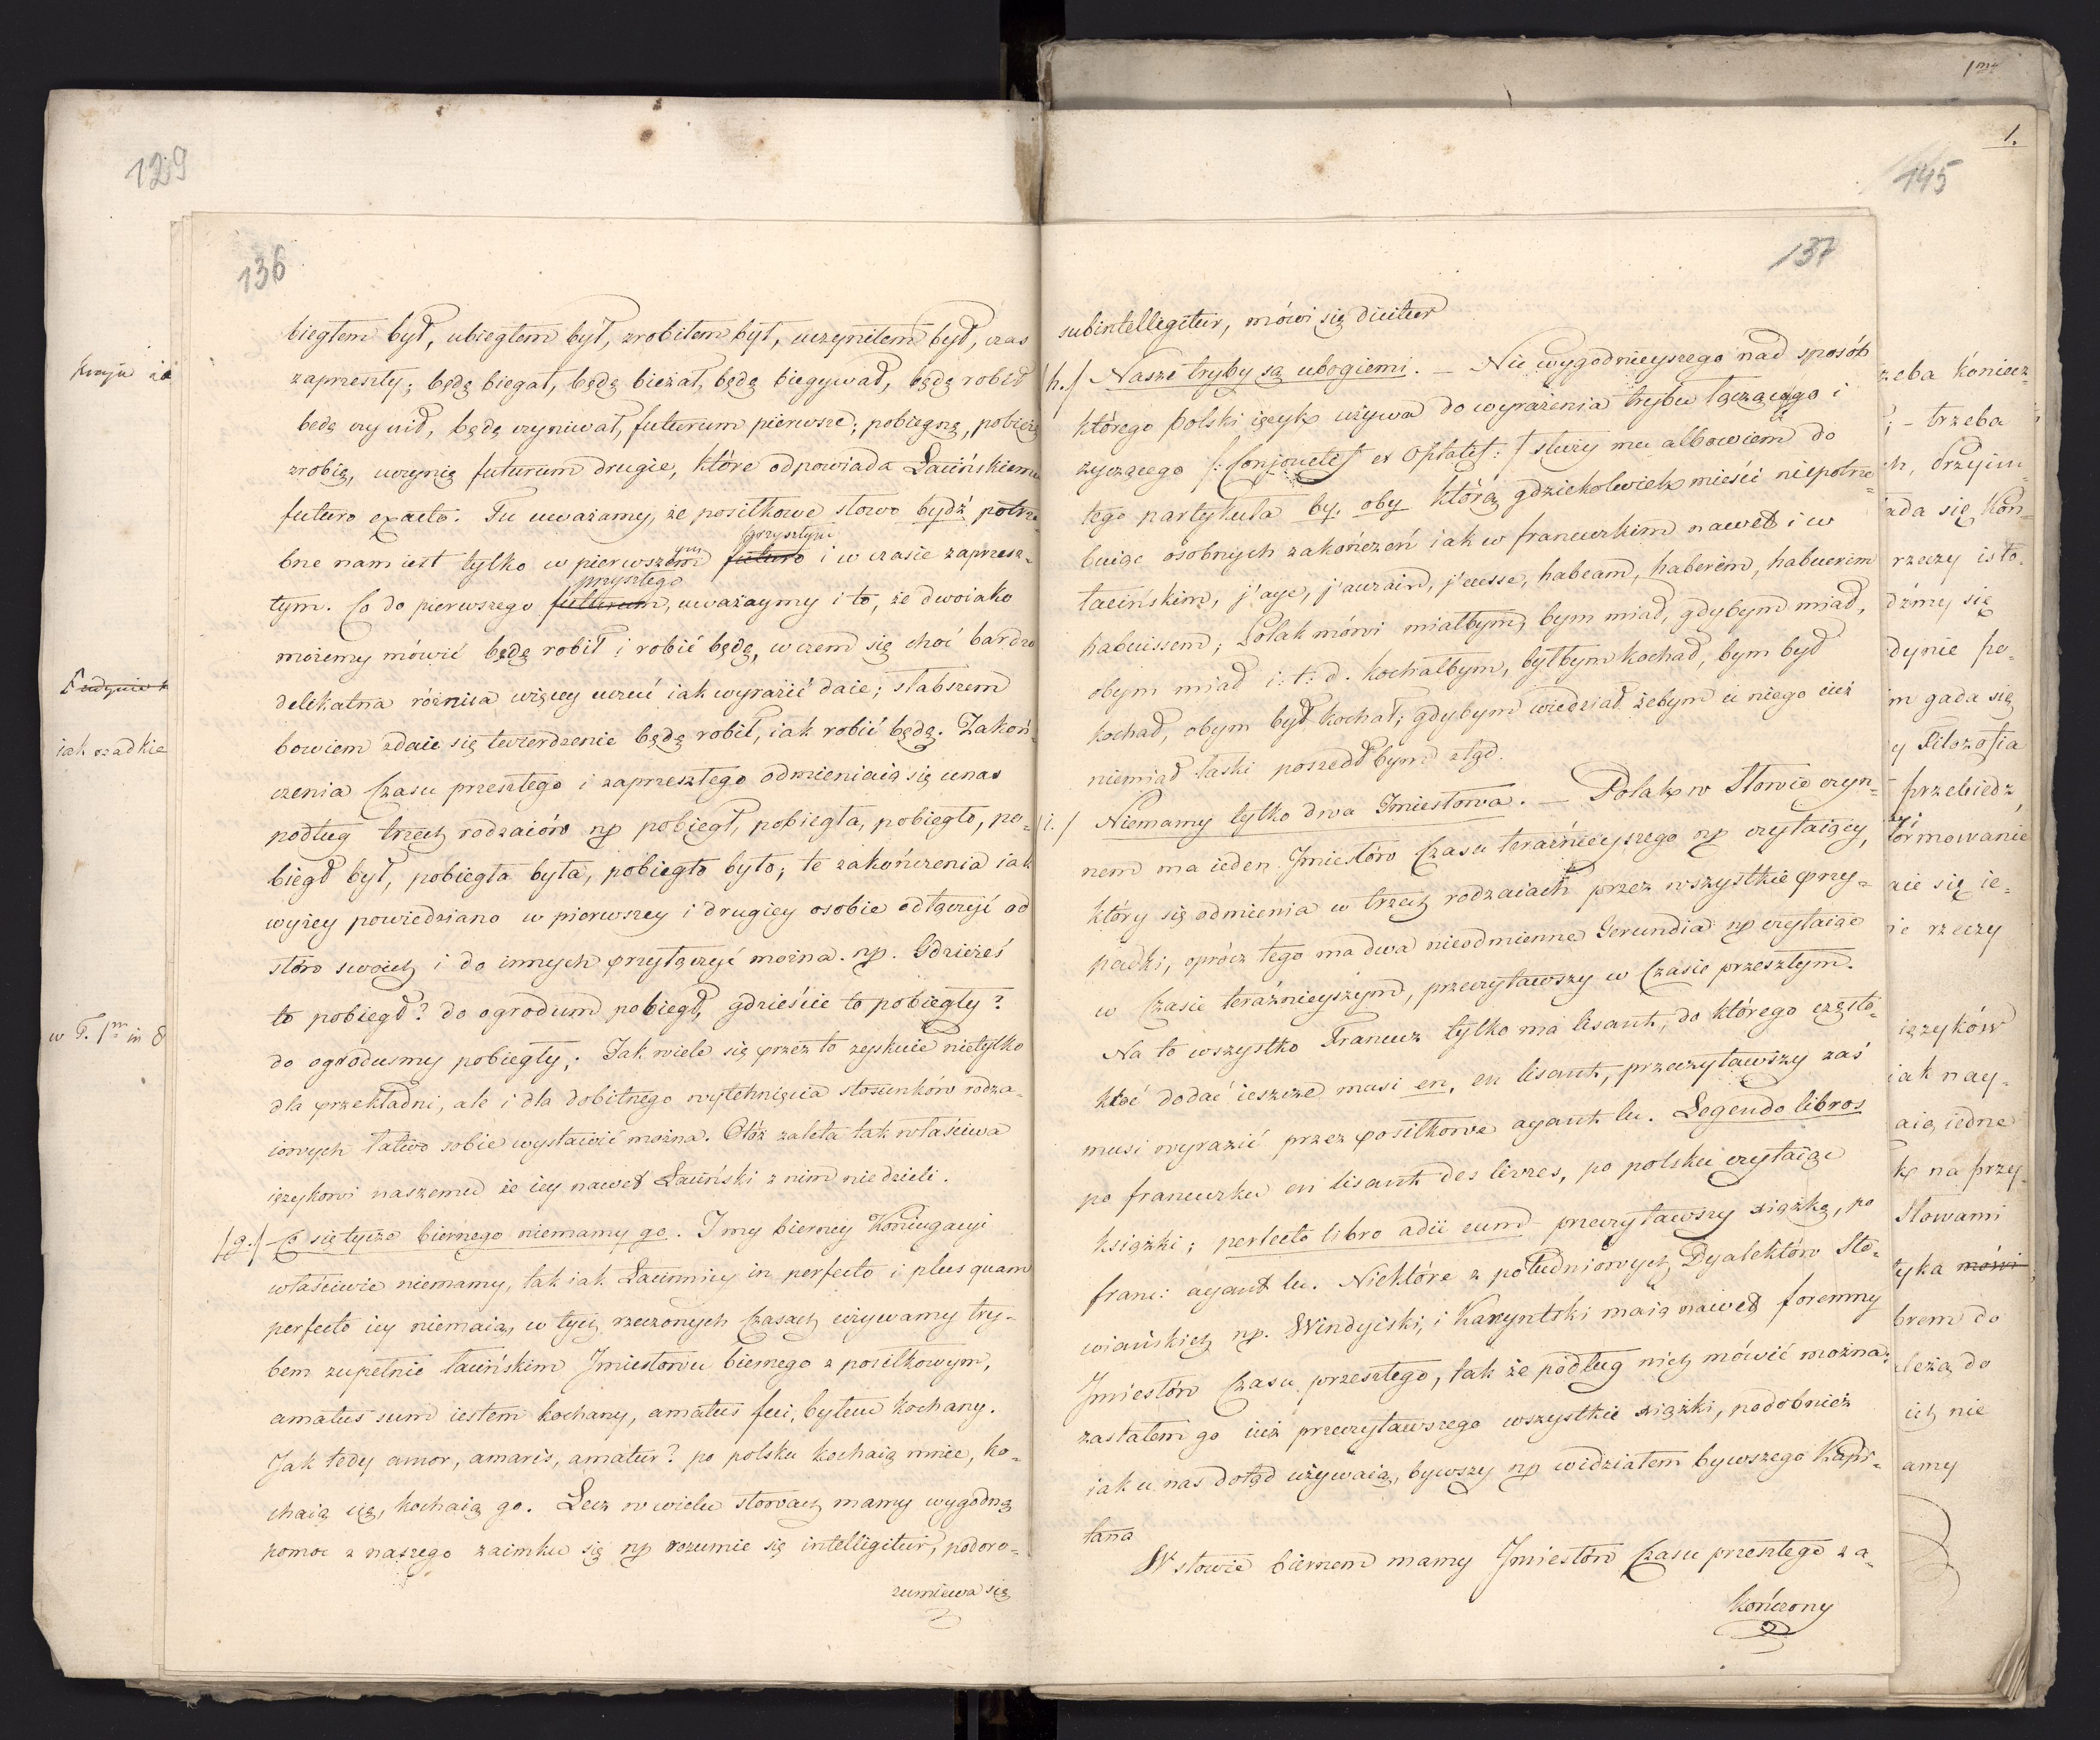 129
136
kraju za
biegłem był, ubiegłem był, zrobiłem był, uczyniłem był, czas
zaprzeszły; będę biegał, będę bieżał, będę biegywał, będę robił
będę czynił, będę czyniwał, futurum pierwsze; pobiegnę, pobieżę
zrobię, uczynię futurum drugie, które odpowiada Łacińskiemu
futuro exacto. Tu uważamy, że posiłkowe słowo bydź potrze
przyszłym
bne nam iest tylko w pierwszem futuro i w czasie zaprzesz-
przyszłego
tym. Co do pierwszego futurum, uważaymy i to, że dwoiako
możemy mówić będę robił i robić będę, w czem się choć bardzo
delikatna różnica więcey uczuć iak wyrazić daie; słabszem
iak rzadkie
bowiem zdaie się twierdzenie będę robił, iak robić będę. Zakoń-
czenia Czasu przeszłego i zaprzeszłego odmieniaią się u nas
podług trzech rodzaiów np pobiegł, pobiegła, pobiegło, po-
biegł był, pobiegła była, pobiegło było; te zakończenia iak
wyżey powiedziano w pierwszey i drugiey osobie odłączyć od
słów swoich i do innych przyłączyć można. np. Gdzieżeś
w T. 1m in 8
to pobiegł? do ogrodum pobiegł, gdzieście to pobiegły?
do ogrodusmy pobiegły; Jak wiele się przez to zyskuie nietylko
dla przekładni, ale i dla dobitnego wytchnięcia stosunków rodza-
iowych łatwo sobie wystawić można. Otóż zaleta tak właściwa
ięzykowi naszemu że iey nawet Łaciński z nim niedzieli.
/g./ Co się tycze biernego niemamy go. I my bierney Koniugacyi
właściwie niemamy, tak iak Łacinnicy in perfecto i plus quam
perfecto iey niemaią, w tych rzeczonych Czasach używamy try-
bem zupełnie łacińskim Jmiesłowu biernego z posiłkowym,
amatus sum iestem kochany, amatus fui, byłem kochany.
Jak tedy amor, amaris, amatur? po polsku kochaią mnie, ko-
chaią cię, kochaią go. Lecz w wielu słowach mamy wygodną
pomoc z naszego zaimku się np rozumie się intelligitur, podoro-
zumiewa się
1m
1.
145
137
subintelligitur, mówi się dicitur
/h./ Nasze tryby są ubogiemi. – Nic wygodnieyszego nad sposób
którego Polski ięzyk używa do wyrażenia trybu łączącego i
życzącego /: Conjonctet et Optatet :/ służy mu albowiem do
tego partykuła by. oby którą gdziekolwiek mieści niepotrze-
buiąc osobnych zakończeń iak w francuzkim nawet i w
łacińskim, j'aye, j'aurais, j'eusse, habeam, haberem, habuerim
habuissem; Polak mówi miałbym, bym miał, gdybym miał,
obym miał i: t: d. Kochałbym, byłbym kochał, bym był
kochał, obym był kochał; gdybym wiedział żebym u niego iuż
niemiał łaski poszedłbym ztąd.
/i./ Niemamy tylko dwa Jmiesłowa. – Polak w Słowie czyn-
nem ma ieden Jmiesłów Czasu teraźnieyszego np czytaiący,
który się odmienia w trzech rodzaiach przez wszystkie przy-
padki, oprócz tego ma dwa nieodmienne Gerundia np czytaiąc
w Czasie teraźnieyszym, przeczytawszy w Czasie przeszłym.
Na to wszystko Francuz tylko ma lisant, do którego często-
kroć dodać ieszcze musi en, en lisant, przeczytawszy zaś
musi wyrazić przez posiłkowe ayant lu. Legendo libros
po francuzku en lisant des livres, po polsku czytaiąc
książki; perlecto libro adii eum przeczytawszy xiążkę, po
franc: ayant lu. Niektóre z południowych Dyalektów Sło-
wiańskich np. Windyiski, i Karyntski maią nawet foremny
Jmiesłów Czasu przeszłego, tak że podług nich mówić można:
zastałem go iuż przeczytawszego wszystkie xiążki, podobnież
iak u nas dotąd używaią, bywszy np widziałem bywszego Kapi-
tana
W słowie biernem mamy Jmiesłów Czasu przeszłego za-
kończony
zeba koniecz
; – trzeba
h, Przyim
ada się Kon-
rzeczy isto-
dźmy się
dynie po-
m gada się
y Filozofia
– przebiedz
formowanie
aie się ie-
ie rzeczy
ięzyków
iak nay-
aią iedne
k na przy-
Słowami
tyka mówi
brem do
leżą do
ich nie
amy